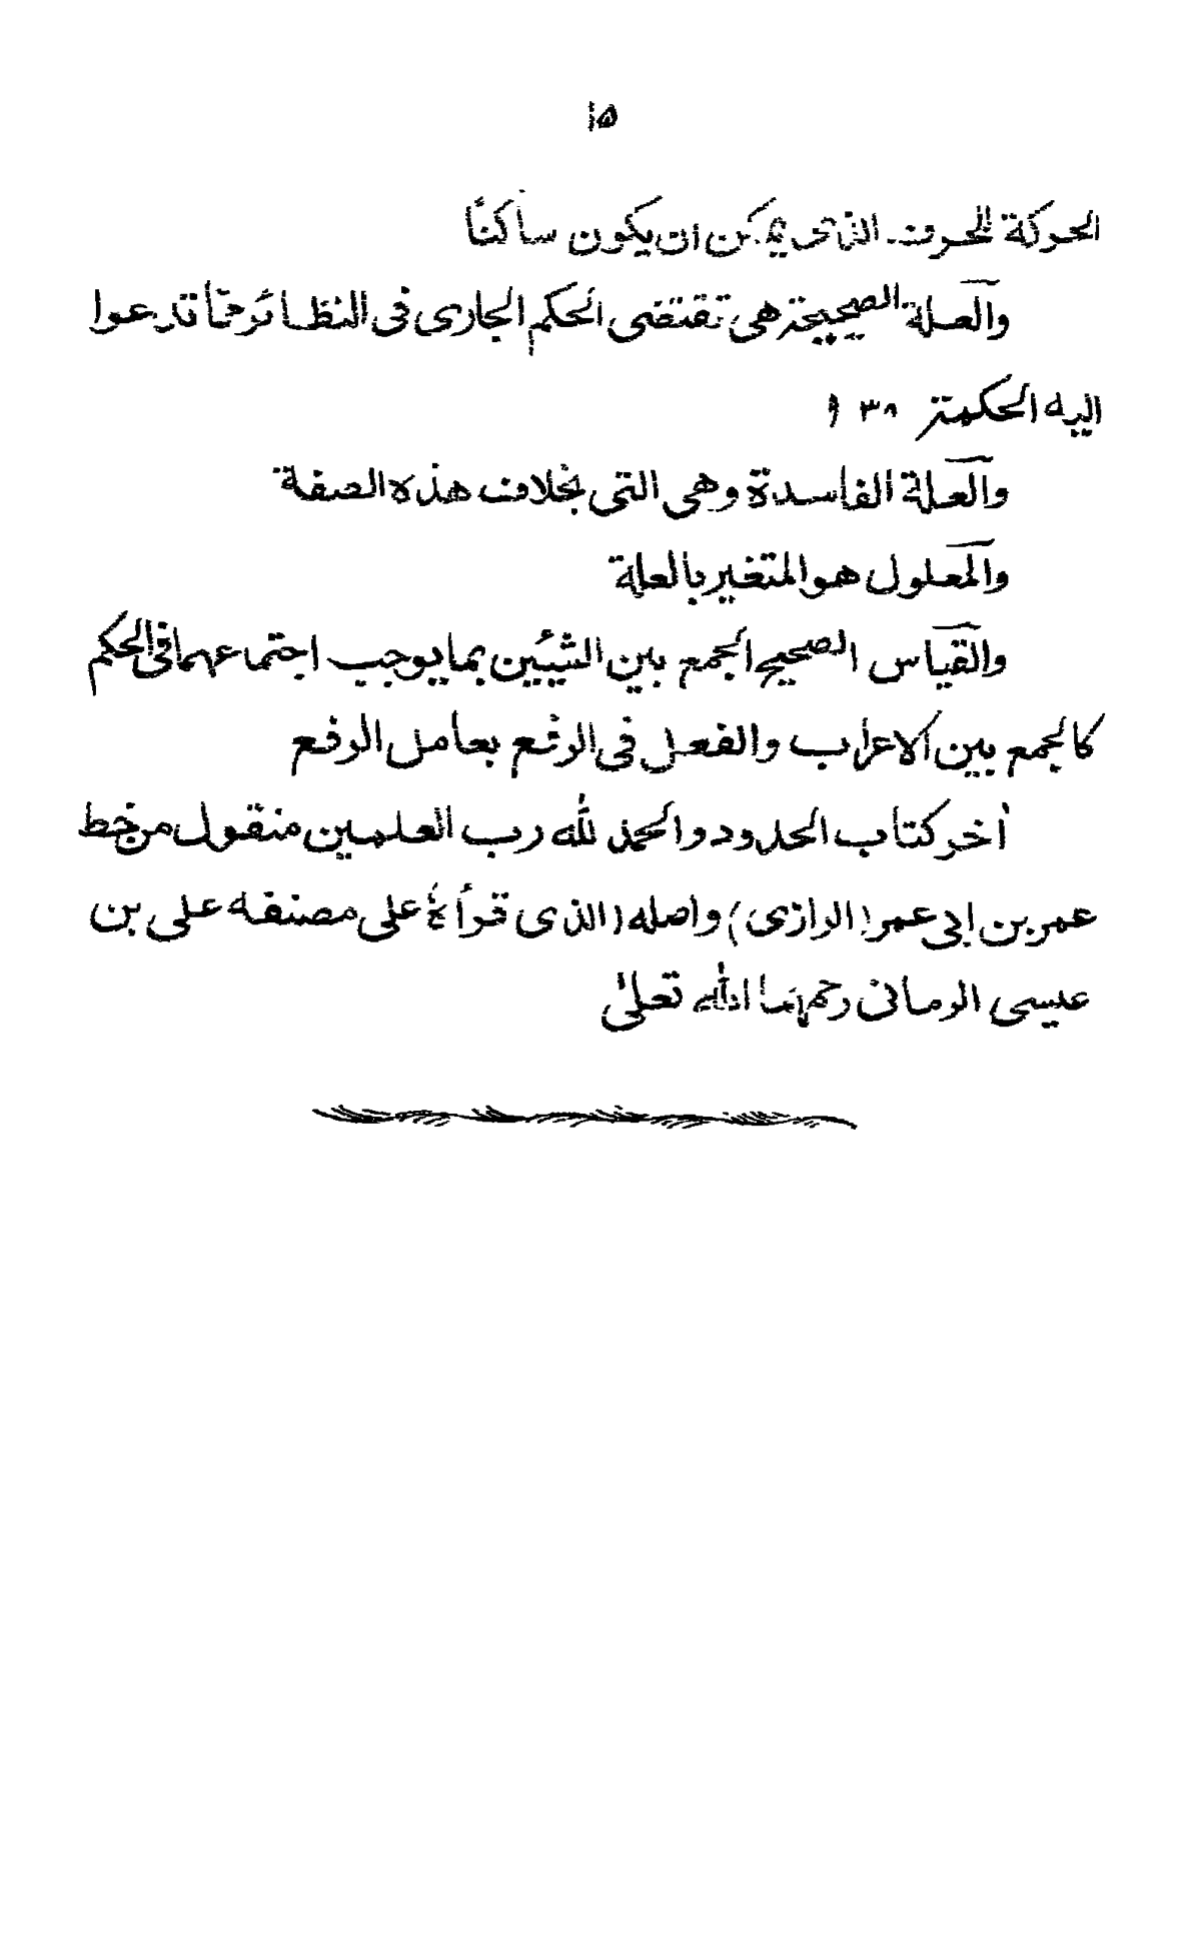 ١٥
الحركة للحرف الذى يمكن ان يكون ساكنًا
والعلة الصحيحة هى تقتضى الحكم الجارى فى النظائر ممّا تدعوا
اليه الحكمة ٣٨ و
والعلة الفاسدة وهى التى بخلاف هذه الصفة
والمعلول هو المتغير بالعلة
والقياس الصحيح الجمع بين الشيئين بما يوجب اجتماعهما فى الحكم
كالجمع بين الاعراب والفعل فى الرفع بعامل الرفع
أخر كتاب الحدود والحمد لله رب العلمين منقول من خط
عمر بن ابى عمر (الرازى) واصله (الذى قرأة على مصنفه على بن
عيسى الرمانى رحمهما الله تعلىٰ